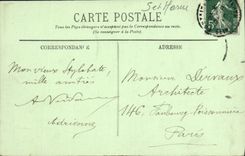 CARTE POSTALE
Tous les Pays étrangers n'acceptent pas la Correspondance au recto
(Se renseigner à la Poste)
CORRESPONDANCE
ADRESSE
Mon vieux Stylobate,
mille amitiés
Adrienne
Monsieur Dervaux
Architecte
146, Faubourg Poissonnière
Paris